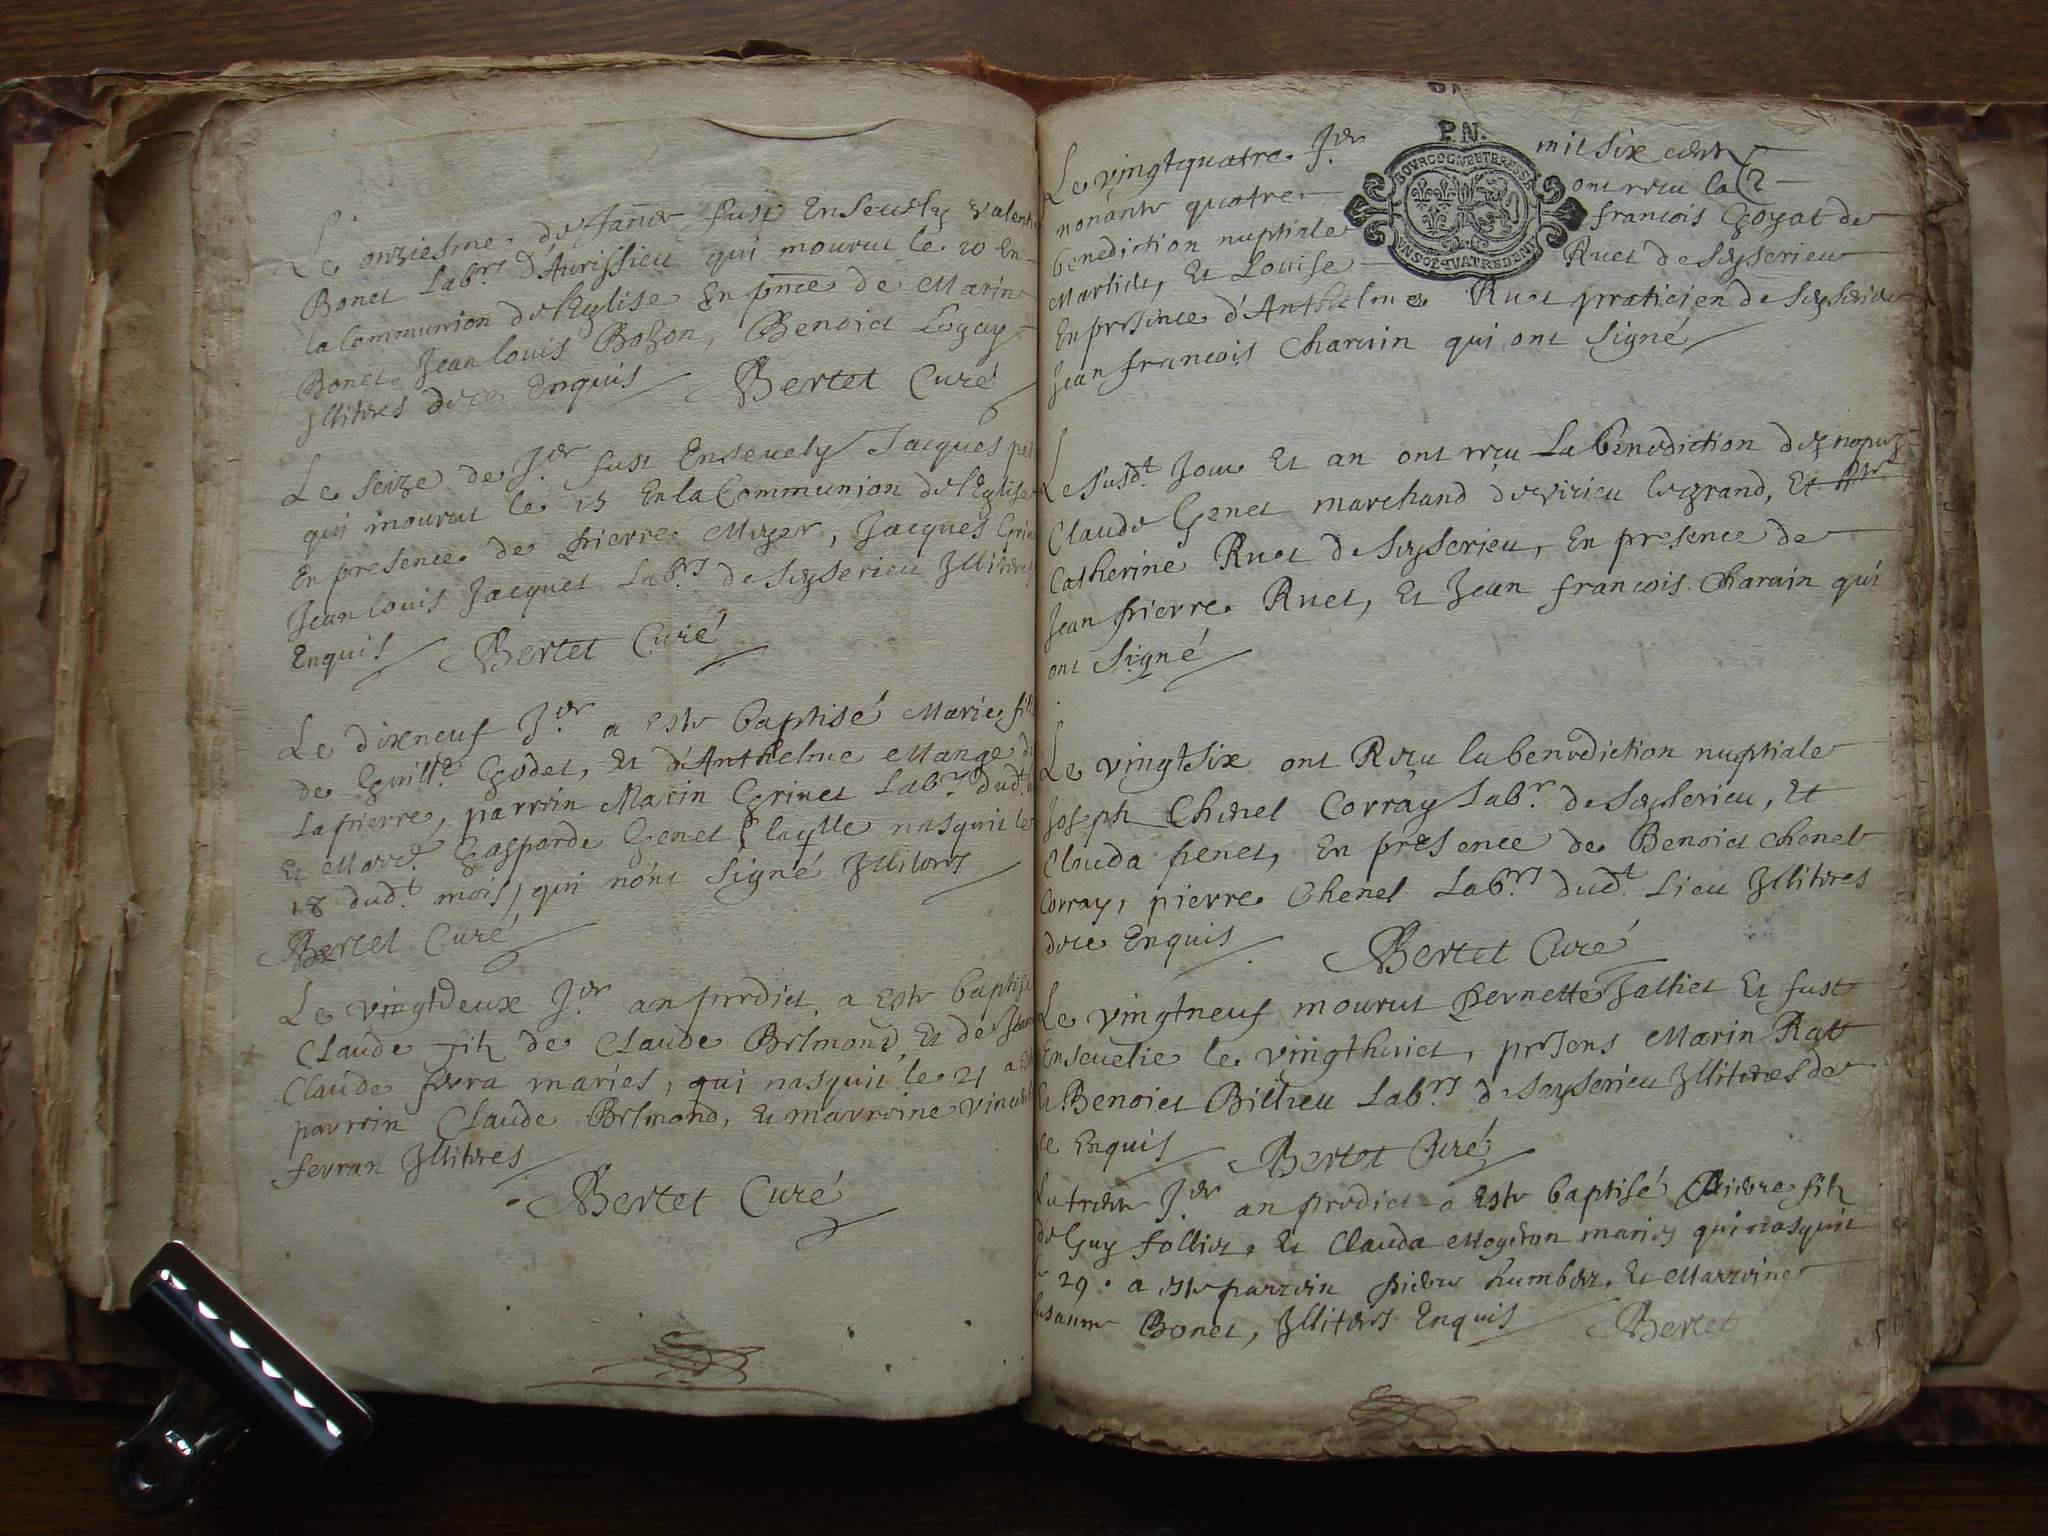 Le onziesme de Janer fust Ensevely valent
Bonet Labrs d'Aurissieu qui mourut le 10 En
la Communion de l'Eglise En pnce de Marin
Bonet Jean louis Bozon, Benoict
Illitères de ce Enquis Bertet Curé
Le seize de Jer fust Ensevely Jacques
qui mourut le 15 En la Communion de l'Eglise
En presence de pierre Moyer, Jacques
Jean louis Jacquet Labrs de Seyserieu Illitères
Enquis Bertet Curé
Le dixneuf Jer a esté baptisé Marie
de Guille Godet, Et d'Anthelme Mange
Lapierre, parrein Marin Grinet Labr dudt
Et Marr. Gasparde Genet laqlle nasquit le
18 dudt mois, qui nónt Signé Illiteres
Bertet Curé
Le vingtdeux Jer an predict a esté baptisé
Claude filz de Claude Belmond, Et de
Claude mariés, qui nasquit le 21 a
parrein Claude Belmond, et marreine
fevran Illitères
Bertet Curé
P.N.
BOURGOGNE ET BRESSE
UN SOL QUATRE DENI
Le vingtquatre Jer mil six cent
nonánte quatre ont reçu la
benediction nuptiale francois Goyat de
Martide, Et Louise Ruet de Seyserieu
En presence d'Anthelme Ruet praticien de Seyserieu
Jean francois Charuin qui ont Signé
Le susdt Jour Et an ont reçu La benediction
Claude Genet marchand de virieu legrand, Et
Catherine Ruet de Seyserieu, En presence de
Jean pierre Ruet, Et Jean francois Charuin qui
ont Signé
Le vingtsix ont Reçu la benediction nuptiale
Joseph Chenel Corray Labr de Seyserieu, Et
Clauda penet, En présence de Benoict Chenel
Corray, pierre Chenel Labrs dudt Lieu Illitères
de ce Enquis Bertet Curé
Le vingtneuf mourut Pernette Jalliet Et fust
Ensevelie le vingthuict, presens Marin Rat
Et Benoict Billieu Labrs de Seyserieu Illitères de
ce Enquis Bertet Curé
Jer an predict a esté baptisé Pierre filz
de Guy follier, Et Clauda Mogeron mariés qui nasquit
29. a esté parrein pierre humbert, Et Marreine
Bonet, Illiteres Enquis Bertet